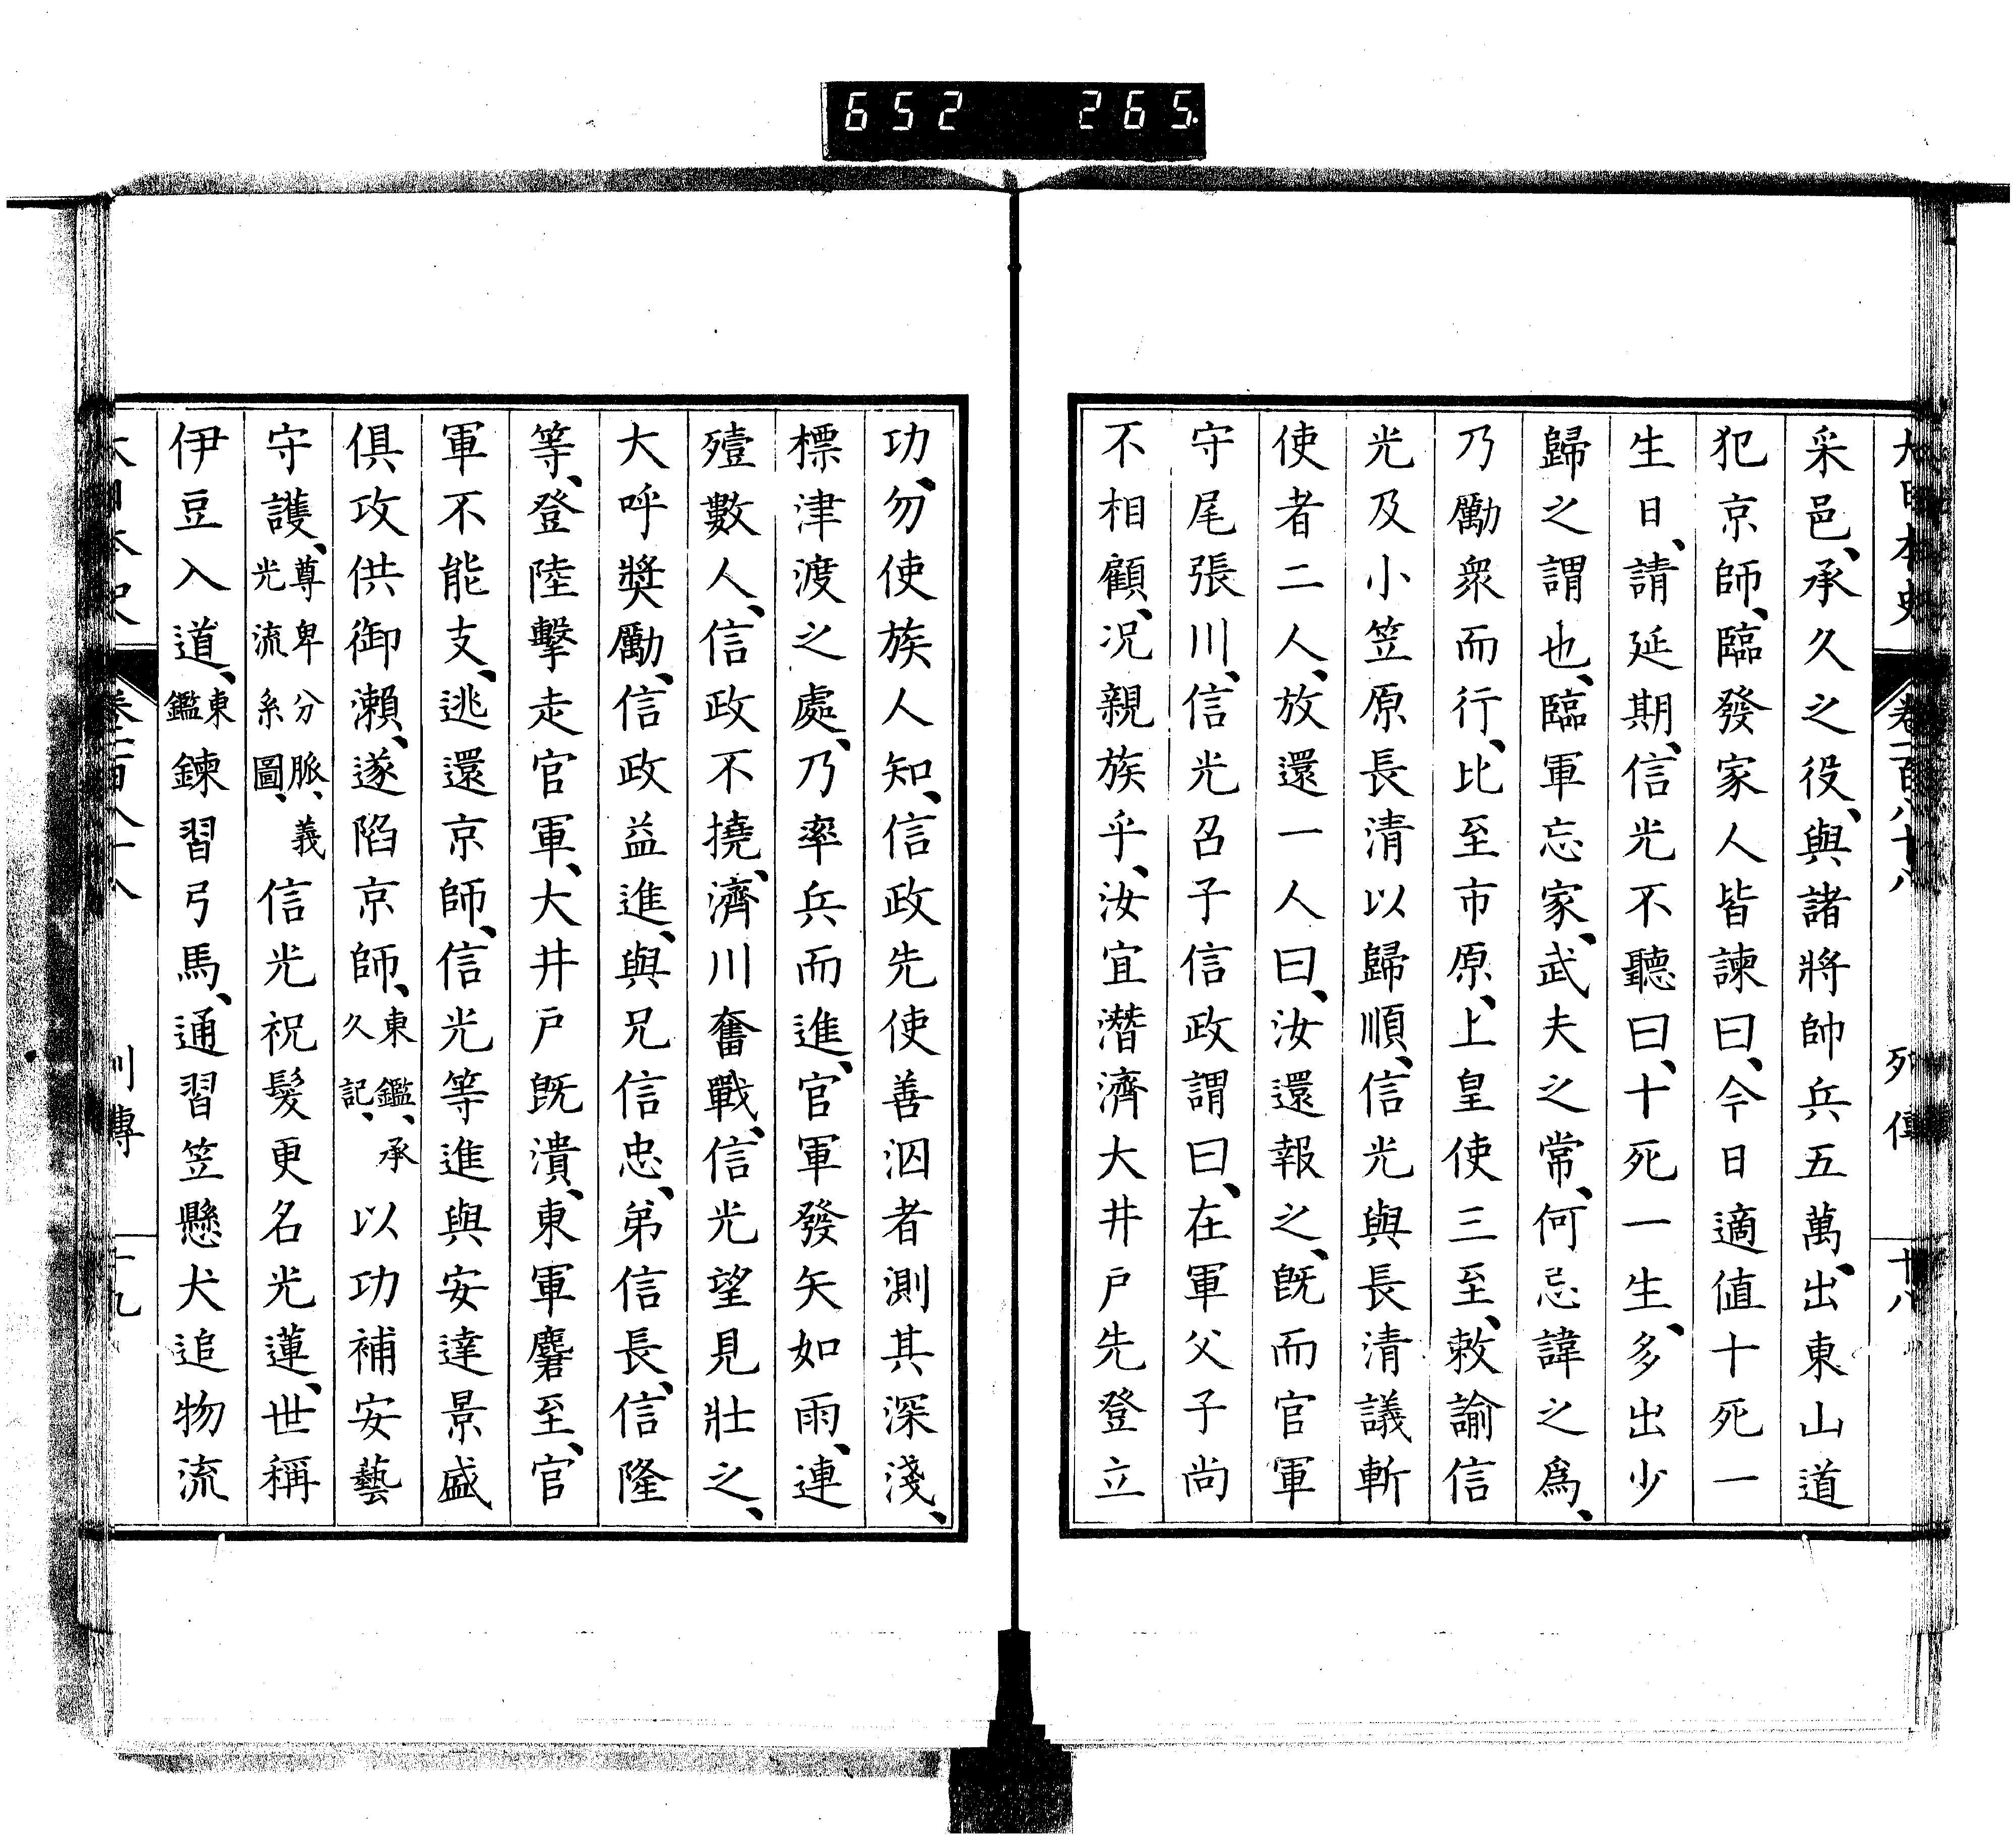 652 265.
大日本史 卷一百八十八 列傳 十八
采邑、承久之役、與諸將帥兵五萬、出東山道
犯京師、臨發家人皆諫曰、今日適值十死一
生日、請延期、信光不聽曰、十死一生、多出少
歸之謂也、臨軍忘家、武夫之常、何忌諱之爲、
乃勵衆而行、比至市原、上皇使三至、敕諭信
光及小笠原長清以歸順、信光與長清議斬
使者二人、放還一人曰、汝還報之、既而官軍
守尾張川、信光召子信政謂曰、在軍父子尚
不相顧、況親族乎、汝宜潛濟大井戸先登立
功、勿使族人知、信政先使善泅者測其深淺、
標津渡之處、乃率兵而進、官軍發矢如雨、連
殪數人、信政不撓、濟川奮戰、信光望見壯之、
大呼獎勵、信政益進、與兄信忠、弟信長、信隆
等、登陸擊走官軍、大井戸既潰、東軍麕至、官
軍不能支、逃還京師、信光等進與安達景盛
俱攻供御瀨、遂陷京師、東鑑、承久記、以功補安藝
守護、尊卑分脈、義光流系圖、信光祝髮更名光蓮、世稱
伊豆入道、東鑑鍊習弓馬、通習笠懸犬追物流
大日本史 卷一百八十八 列傳 十九